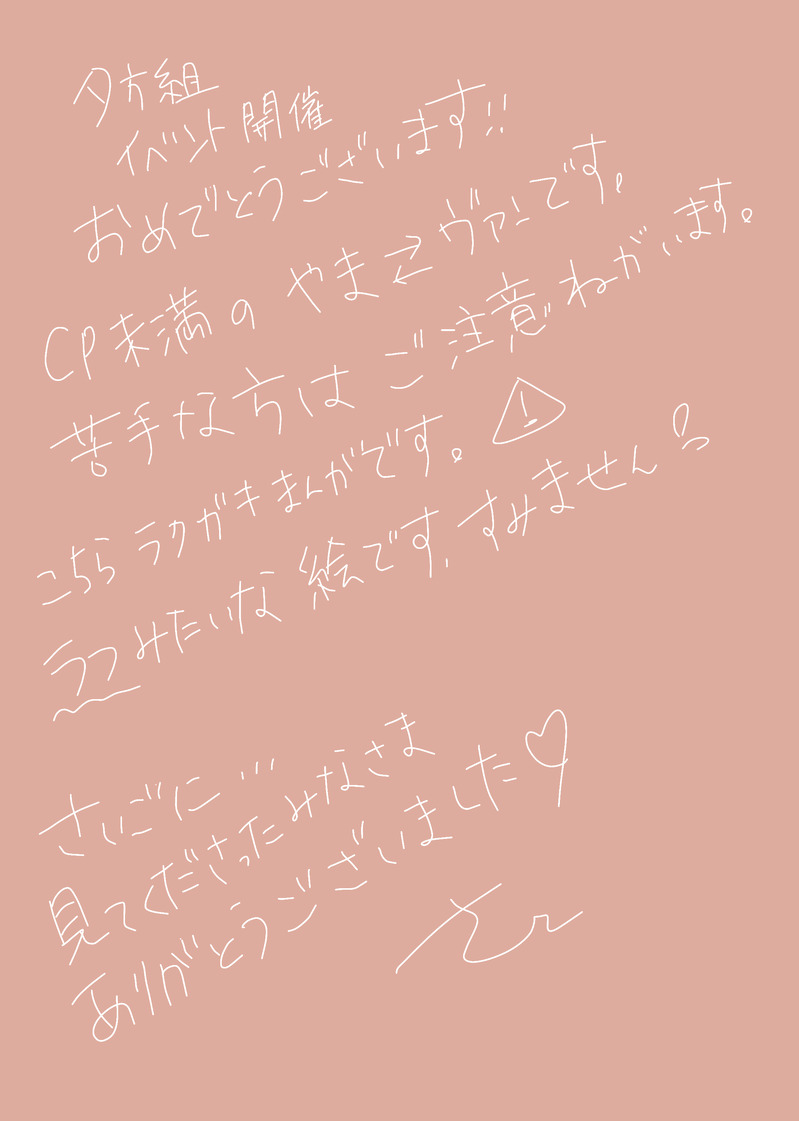 夕方組
イベント開催
おめでとうございます!!
CP未満の やま⇄ヴァンです。
苦手な方は ご注意ねがいます。
こちらラクガキまんがです。⚠
ラフみたいな絵です、すみません
さいごに…
見てくださったみなさま
ありがとうございました♡